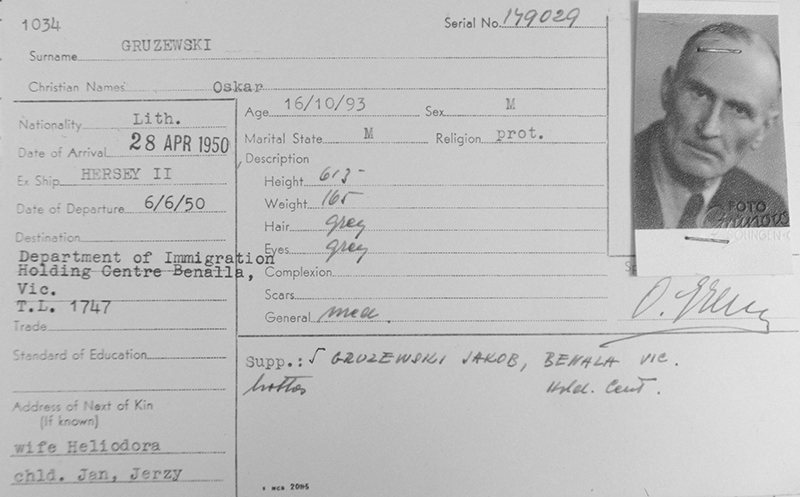 1034
Serial No. 179029
Surname GRUZEWSKI
Christian Names Oskar
Nationality Lith.
Date of Arrival 28 APR 1950
Ex Ship HERSEY II
Date of Departure 6/6/50
Destination
Department of Immigration
Holding Centre Benalla,
Vic.
T.L. 1747
Trade
Standard of Education
Address of Next of Kin
(If known)
wife Heliodora
chld. Jan, Jerzy
Age 16/10/93 Sex M
Marital State M Religion prot.
Description
Height
Weight 165
Hair grey
Eyes grey
Complexion
Scars
General med.
Supp.: √ GRUZEWSKI JAKOB, BENALA VIC.
Hold. Cent.
FOTO
SOLINGEN